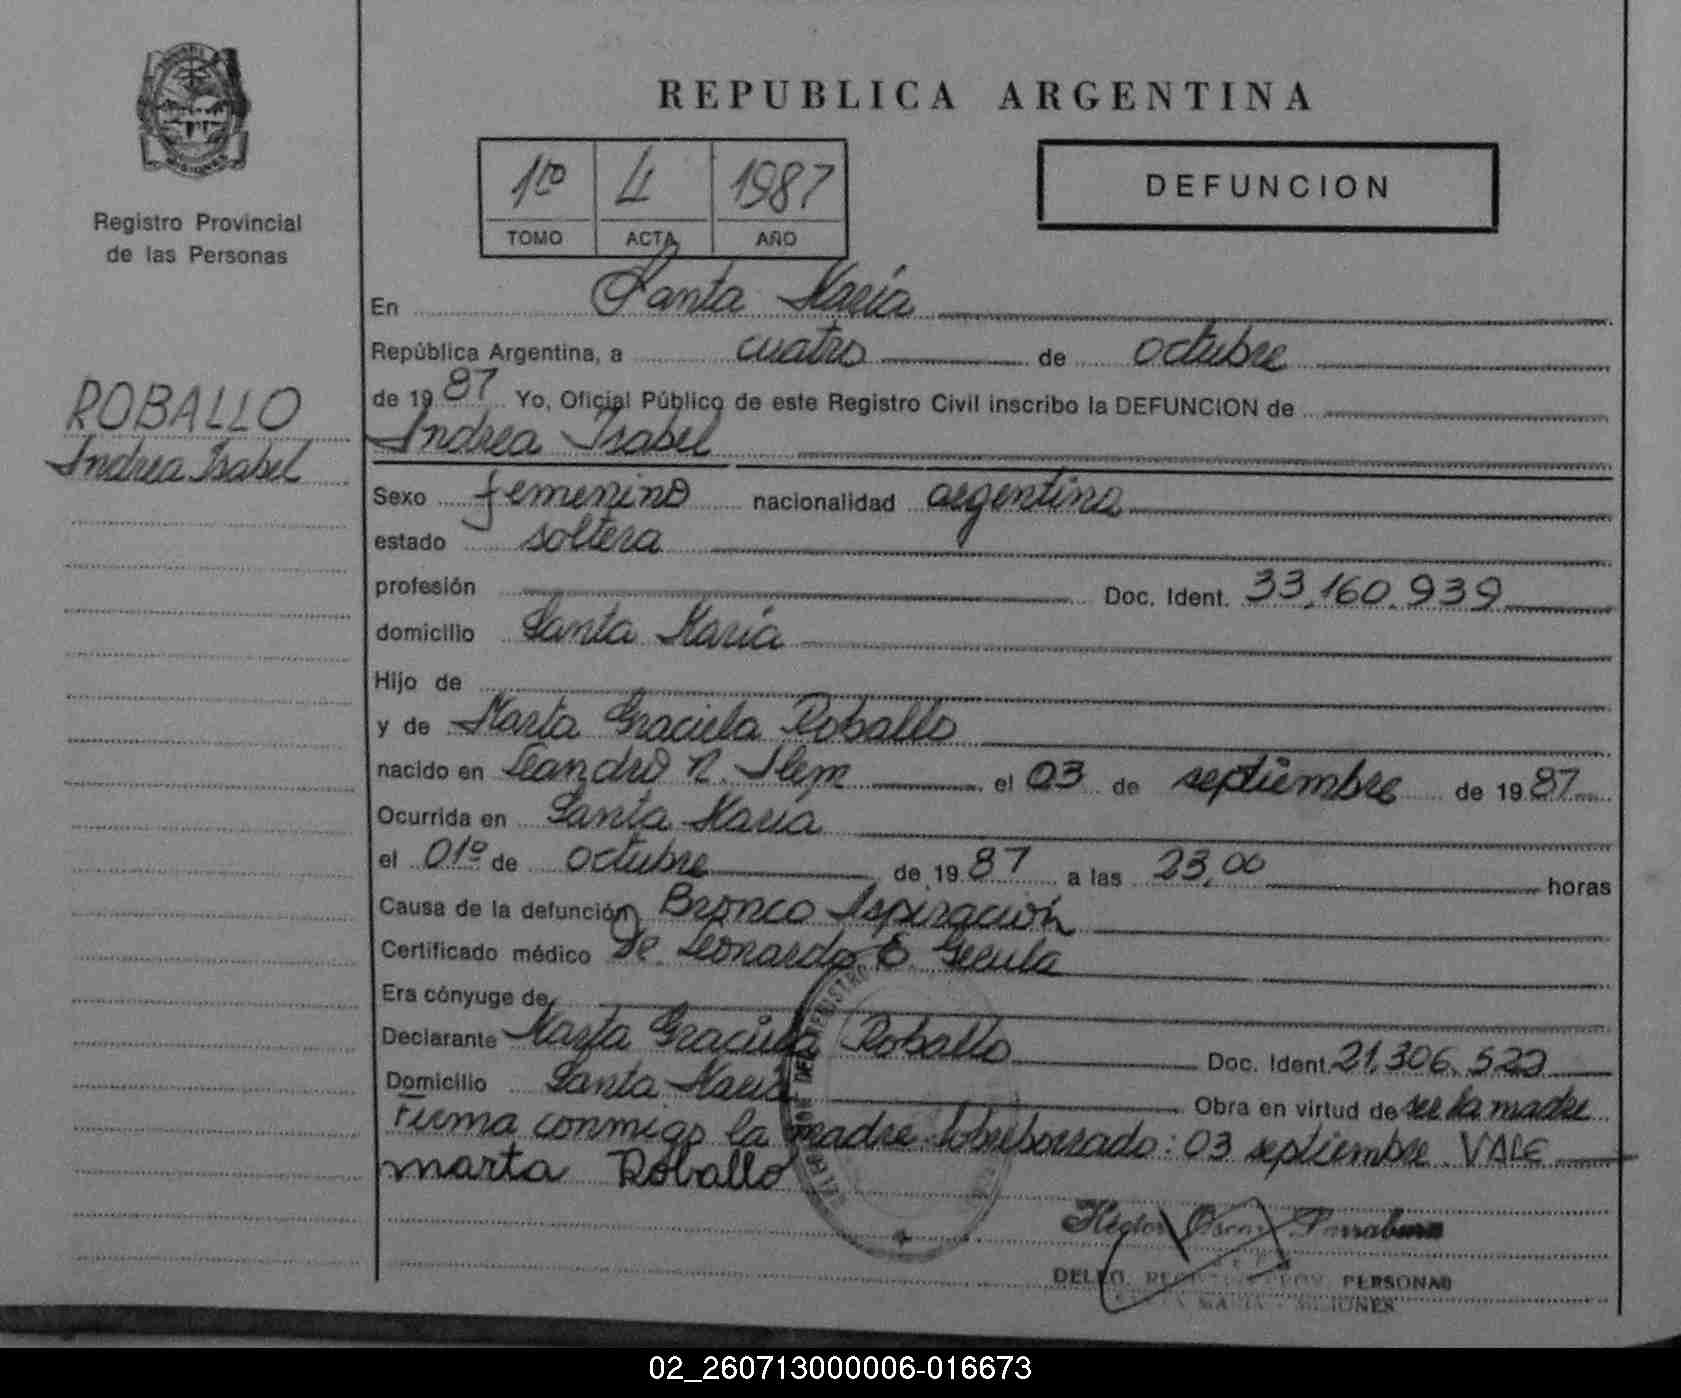 REPUBLICA ARGENTINA
1ro 4 1987
TOMO ACTA AÑO
DEFUNCION
MISIONES
Registro Provincial
de las Personas
ROBALLO
Andrea Isabel
En Santa María
República Argentina, a cuatro de octubre
de 1987 Yo, Oficial Público de este Registro Civil inscribo la DEFUNCION de
Andrea Isabel
Sexo femenino nacionalidad argentina
estado soltera
profesión Doc. Ident. 33.160.939
domicilio Santa María
Hijo de
y de Marta Graciela Roballo
nacido en Leandro N. Alem el 03 de septiembre de 1987
Ocurrida en Santa María
el 01º de octubre de 1987 a las 23,00 horas
Causa de la defunción Bronco Aspiración
Certificado médico Dr. Leonardo
Era cónyuge de
Declarante Marta Graciela Roballo Doc. Ident. 21.306.522
Domicilio Santa María Obra en virtud de ser la madre
Firma conmigo la madre. Sobreborrado: 03 septiembre VALE
marta Roballo
Héctor Oscar
PERSONAS
MARIA - MISIONES
02_260713000006-016673